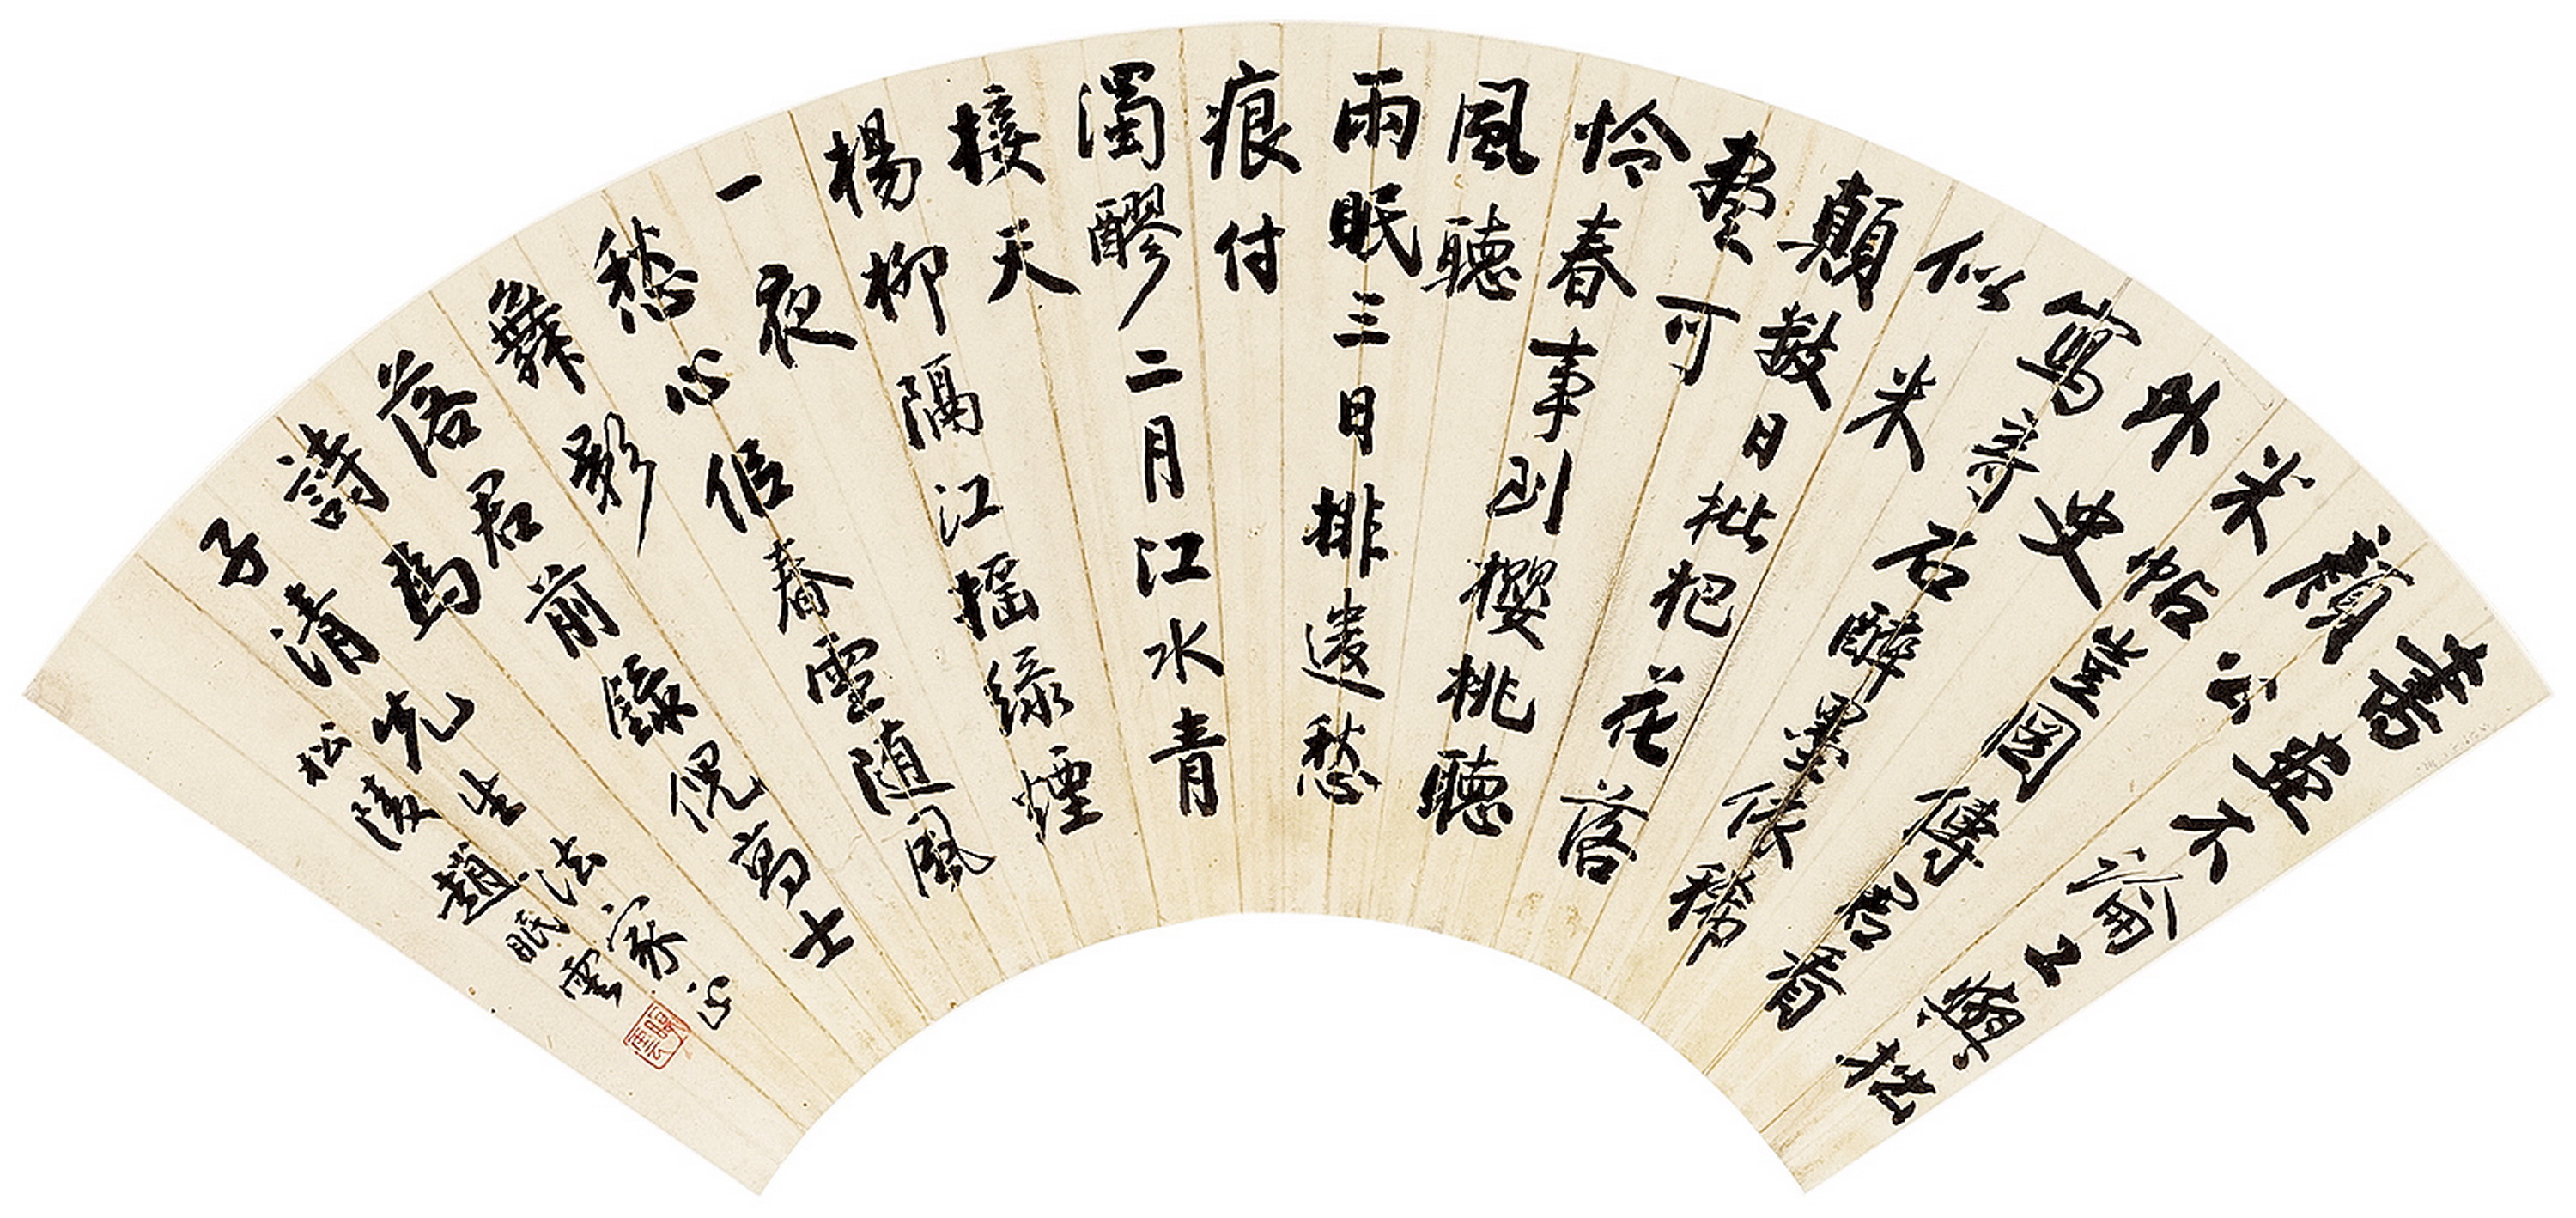 書畫不論工與拙
顏公
米帖豈圖傳君看
外史
寫奇石醉墨依稀
似米
顛數日枇杷花落
盡可
憐春事到櫻桃聽
風聽
雨眠三日排遣愁
痕付
濁醪二月江水青
接天
楊柳隔江搖綠煙
一夜
愁心春雲隨風
舞影
落君前錄倪高士
詩為
子清先生法家正
松陵趙眠雲
眠雲